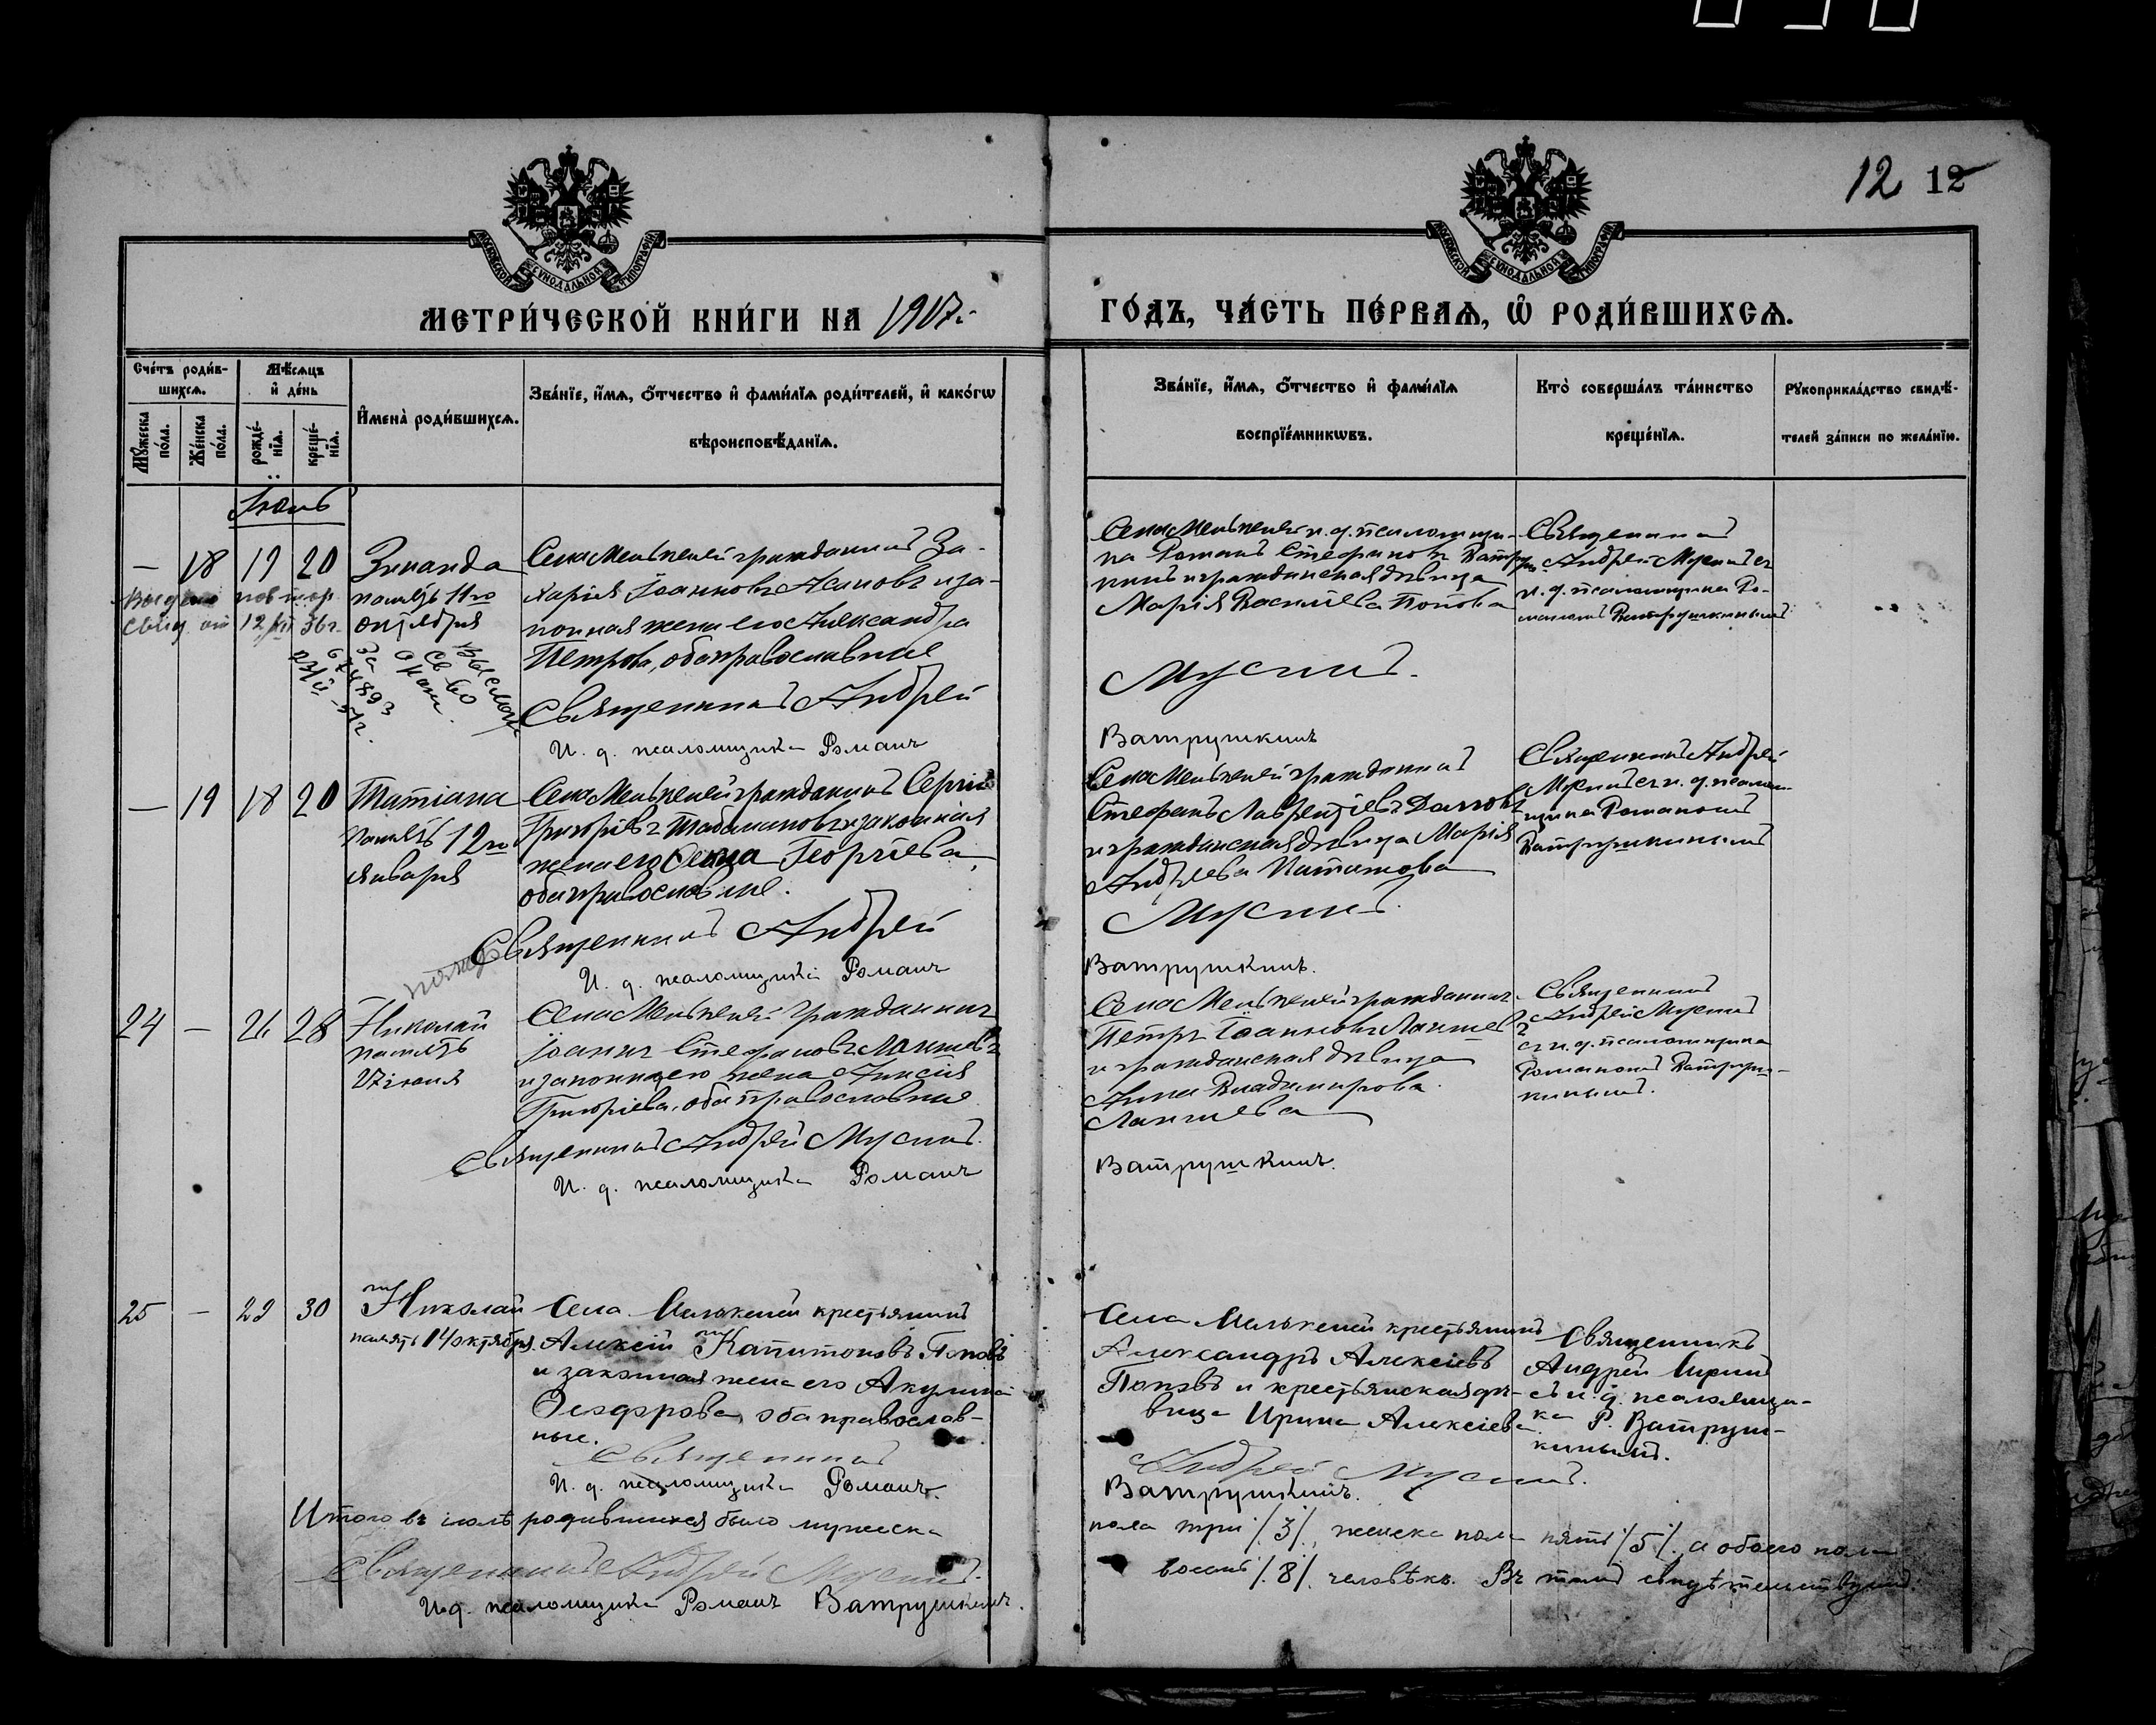 12 12
МОСКОВСКОЙ СѴНОДАЛЬНОЙ ТИПОГРАФІИ
МОСКОВСКОЙ СѴНОДАЛЬНОЙ ТИПОГРАФІИ
МЕТРИ́ЧЕСКОЙ КНИ́ГИ НА 1917 г.
ГО́ДЪ, ЧА́СТЬ ПЕ́РВАѦ, Ѽ РОДИ́ВШИХСѦ.
Сче́тъ роди́в-
шихсѧ.
Мѣ́сѧцъ
и҆ де́нь
Мꙋ́жеска по́ла.
Же́нска по́ла.
рожде́-
нїѧ.
креще́-
нїѧ.
И҆мена̀ роди́вшихсѧ.
Зва́нїе, и҆́мѧ, ѻ҆́тчество и҆ фами́лїѧ роди́телей, и҆ како́гѡ
вѣроисповѣ́данїѧ.
Зва́нїе, и҆́мѧ, ѻ҆́тчество и҆ фами́лїѧ
воспрїе́мникѡвъ.
Кто̀ соверша́лъ та́инство
креще́нїѧ.
Рꙋкоприкла́дство свидѣ́-
телей за́писи по жела́нїю.
— 18 19 20
Зинаида
память 11го
октября
12/XII 56 г.
Села Мелькеней гражданинъ За-
харія Іоанновъ и за-
конная жена его Александра
Петрова, оба православные
Священникъ Андрей
И. д. псаломщика Романъ
Села Мелькеней и. д. псаломщи-
ка Романъ Стефановъ Ватруш-
кинъ и гражданская дѣвица
Марія Васильева Попова
Мусинъ.
Ватрушкинъ
Священникъ
Андрей Мусинъ съ
и. д. псаломщика Ро-
маномъ Ватрушкинымъ
— 19 18 20
Татіана
память 12го
января
Села Мелькеней гражданинъ Сергій
Григоріевъ и законная
жена его Георгіева,
оба православные.
Священникъ Андрей
И. д. псаломщика Романъ
Села Мелькеней гражданинъ
Стефанъ Лаврентіевъ
и гражданская дѣвица Марія
Андреева
Мусинъ.
Ватрушкинъ.
Священникъ Андрей
Мусинъ съ и. д. псалом-
щика Романомъ
Ватрушкинымъ
24 — 26 28
Николай
память
27 іюля
Села Мелькеней гражданинъ
Іоаннъ Стефановъ Лакшевъ
и законная его жена
Григоріева, оба православные
Священникъ Андрей Мусинъ.
И. д. псаломщика Романъ
Села Мелькеней гражданинъ
Петръ Іоанновъ
и гражданская дѣвица
Анна Владимирова
Ватрушкинъ.
Священникъ
Андрей Мусинъ
съ и. д. псаломщика
Романомъ Ватруш-
кинымъ.
25 — 29 30
Николай
память 14 октября.
Села Мелькеней крестьянинъ
Алексій Капитоновъ Поповъ
и законная жена его Акулина
Ѳеодорова, оба православ-
ные.
Священникъ
И. д. псаломщика Романъ.
Села Мелькеней крестьянинъ
Александръ Алексіевъ
Поповъ и крестьянская дѣ-
вица Ирина Алексіева
Андрей Мусинъ.
Ватрушкинъ.
Священникъ
Андрей Мусинъ
съ и. д. псаломщи-
ка Р. Ватруш-
кинымъ.
Итого въ іюлѣ родившихся было мужеска
пола три /3/, женска пола пять /5/, а обоего пола
восемь /8/ человѣкъ. Въ томъ свидѣтельствуемъ.
Священникъ Андрей Мусинъ.
И. д. псаломщика Романъ Ватрушкинъ.